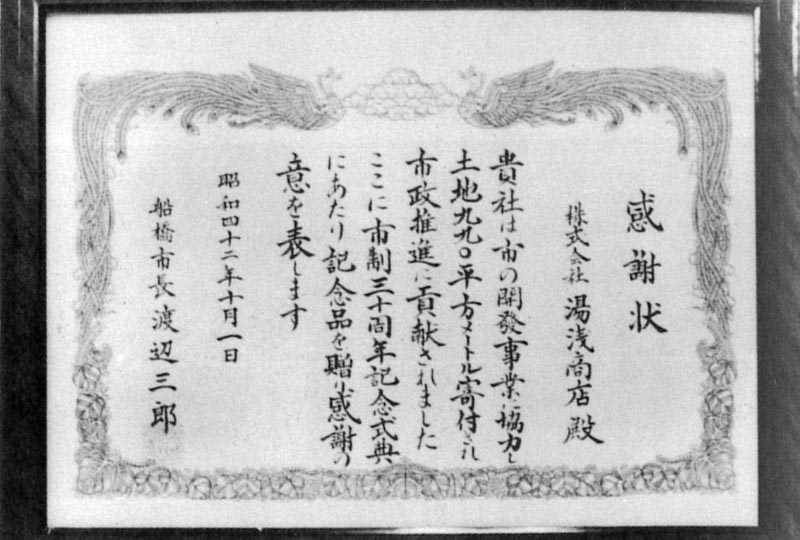 感謝状
株式会社 湯浅商店 殿
貴社は市の開發事業に協力し
土地九九〇平方メートル寄付され
市政推進に貢献されました
ここに市制三十周年記念式典
にあたり記念品を贈り感謝の
意を表します
昭和四十二年十月一日
船橋市長 渡辺三郎